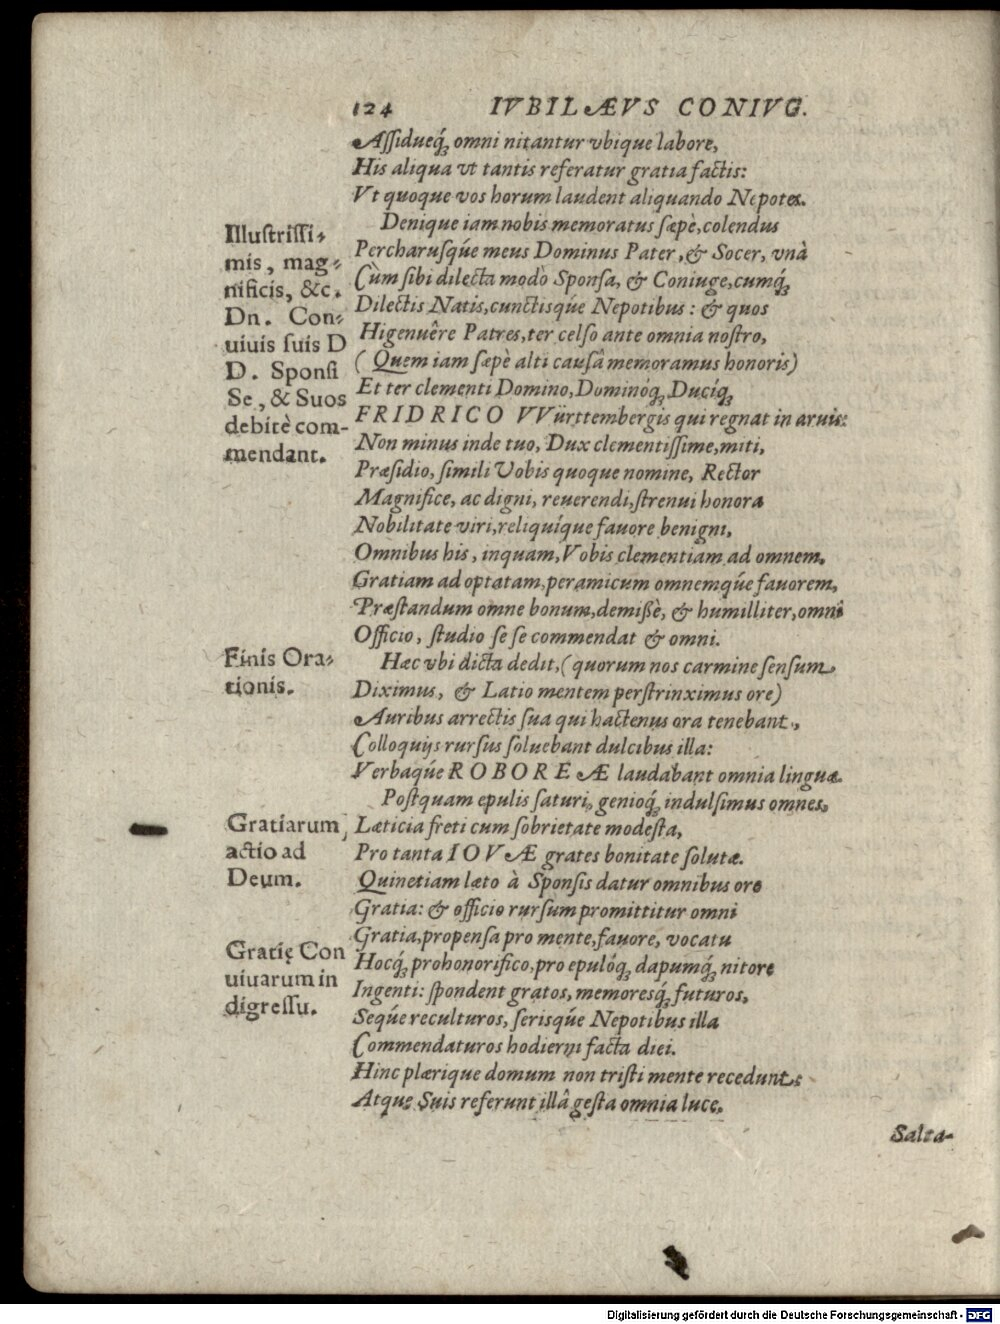 124 IVBILÆVS CONIVG.
Aſſidueq́; omni nitantur vbique labore,
His aliqua vt tantis referatur gratia factis:
Vt quoque vos horum laudent aliquando Nepotes.
Denique iam nobis memoratus ſæpè, colendus
Percharuſqúe meus Dominus Pater, & Socer, vnà
Cùm ſibi dilecta modò Sponſa, & Coniuge, cumq́;
Dilectis Natis, cunctisqúe Nepotibus: & quos
Higenuêre Patres, ter celſo ante omnia noſtro,
(Quem iam ſæpè alti cauſâ memoramus honoris)
Et ter clementi Domino, Dominóq; Ducíq;
FRIDRICO VVürttembergis qui regnat in aruis:
Non minus inde tuo, Dux clementiſſime, miti,
Præſidio, ſimili Vobis quoque nomine, Rector
Magnifice, ac digni, reuerendi, ſtrenui honora
Nobilitate viri, reliquíque fauore benigni,
Omnibus his, inquam, Vobis clementiam ad omnem,
Gratiam ad optatam, peramicum omnemqúe fauorem,
Præſtandum omne bonum, demißè, & humilliter, omni
Officio, ſtudio ſe ſe commendat & omni.
Illuſtriſſi-
mis, mag-
nificis, &c.
Dn. Con-
uiuis ſuis D
D. Sponſi
Se, & Suos
debitè com-
mendant.
Hæc vbi dicta dedit, (quorum nos carmine ſenſum
Diximus, & Latio mentem perſtrinximus ore)
Auribus arrectis ſua qui hactenus ora tenebant,
Colloquijs rurſus ſoluebant dulcibus illa:
Verbaqúe ROBOREÆ laudabant omnia linguæ.
Finis Ora-
tionis.
Poſtquam epulis ſaturi, genioq́; indulſimus omnes,
Læticia freti cum ſobrietate modeſta,
Pro tanta IOVÆ grates bonitate ſolutæ.
Gratiarum
actio ad
Deum.
Quinetiam læto à Sponſis datur omnibus ore
Gratia: & officio rurſum promittitur omni
Gratia, propenſa pro mente, fauore, vocatu
Hocq́; prohonorifico, pro epulóq; dapumq́; nitore
Ingenti: ſpondent gratos, memoresq́; futuros,
Seqúe reculturos, ſerisqúe Nepotibus illa
Commendaturos hodierni facta diei.
Hinc plærique domum non triſti mente recedunt:
Atque Suis referunt illâ geſta omnia luce.
Gratię Con
uiuarum in
digreſſu.
Salta-
Digitalisierung gefördert durch die Deutsche Forschungsgemeinschaft - DFG